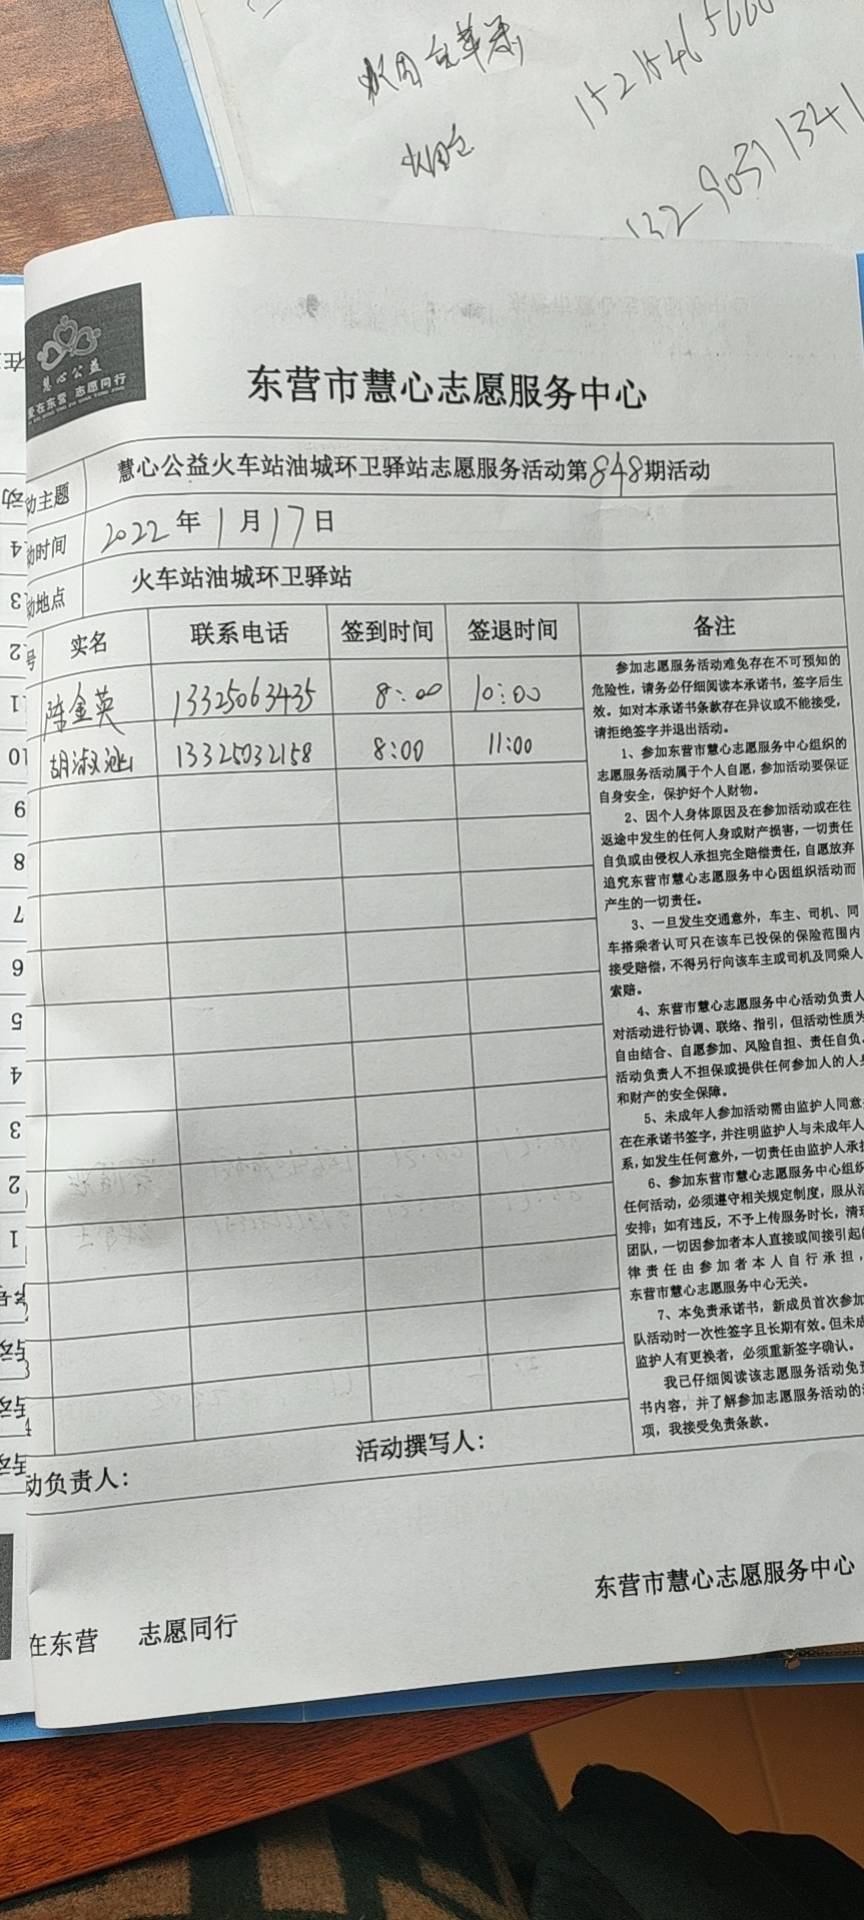 152154656
13290511341
慧心公益
爱在东营 志愿同行
东营市慧心志愿服务中心
动主题 慧心公益火车站油城环卫驿站志愿服务活动第848期活动
动时间 2022年1月17日
动地点 火车站油城环卫驿站
号 实名 联系电话 签到时间 签退时间 备注
陈金英 13325063435 8:00 10:00
胡淑 13325032158 8:00 11:00
参加志愿服务活动难免存在不可预知的
危险性，请务必仔细阅读本承诺书，签字后生
效。如对本承诺书条款存在异议或不能接受，
请拒绝签字并退出活动。
1、参加东营市慧心志愿服务中心组织的
志愿服务活动属于个人自愿，参加活动要保证
自身安全，保护好个人财物。
2、因个人身体原因及在参加活动或在往
返途中发生的任何人身或财产损害，一切责任
自负或由侵权人承担完全赔偿责任，自愿放弃
追究东营市慧心志愿服务中心因组织活动而
产生的一切责任。
3、一旦发生交通意外，车主、司机、同
车搭乘者认可只在该车已投保的保险范围内
接受赔偿，不得另行向该车主或司机及同乘人
索赔。
4、东营市慧心志愿服务中心活动负责人
对活动进行协调、联络、指引，但活动性质为
自由结合、自愿参加、风险自担、责任自负。
活动负责人不担保或提供任何参加人的人身
和财产的安全保障。
5、未成年人参加活动需由监护人同意
在在承诺书签字，并注明监护人与未成年人
系，如发生任何意外，一切责任由监护人承担
6、参加东营市慧心志愿服务中心组织
任何活动，必须遵守相关规定制度，服从活
安排；如有违反，不予上传服务时长，清理
团队，一切因参加者本人直接或间接引起的
律责任由参加者本人自行承担，
东营市慧心志愿服务中心无关。
7、本免责承诺书，新成员首次参加
队活动时一次性签字且长期有效。但未成
监护人有更换者，必须重新签字确认。
我已仔细阅读该志愿服务活动免责
书内容，并了解参加志愿服务活动的
项，我接受免责条款。
动负责人： 活动撰写人：
东营市慧心志愿服务中心
在东营 志愿同行